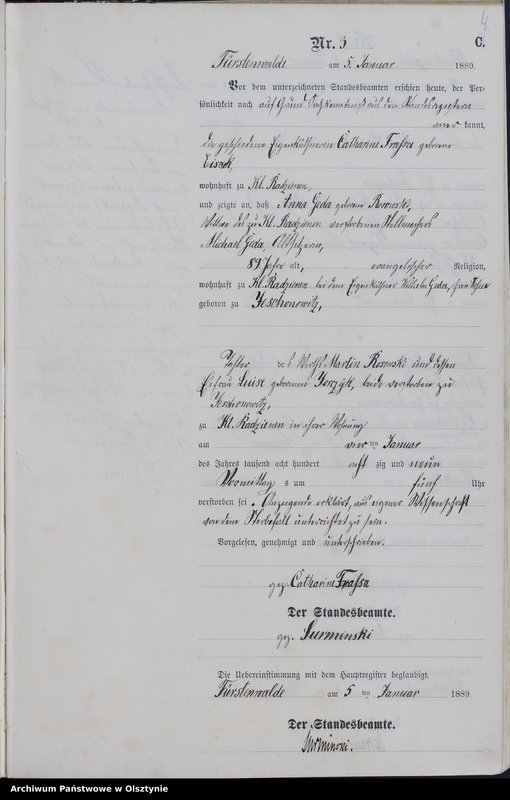 4
Nr. 3 C.
Fürstenwalde am 5. Januar 1889.
Vor dem unterzeichneten Standesbeamten erschien heute, der Per-
sönlichkeit nach auf Grund aus den Standesregistern
kannt,
die geschiedene Eigenkäthnerin Catharine Frassa geborene
wohnhaft zu Kl. Radzienen,
und zeigte an, daß Anna Geda geborene Rosowski,
Wittwe des zu Kl. Radzienen verstorbenen Stellmachers
Michael Geda, Altsitzerin,
89 Jahre alt, evangelischer Religion,
wohnhaft zu Kl. Radzienen bei dem Eigenkäthner Geda, ihrem Sohne
geboren zu Jeschonowitz,
Tochter des Wirths Martin Rosowski und dessen
Ehefrau Luise geborenen beide verstorben zu
Jeschonowitz,
zu Kl. Radzienen in ihrer Wohnung
am vier ten Januar
des Jahres tausend acht hundert acht zig und neun
Vormittags um fünf Uhr
verstorben sei. Anzeigende erklärt, aus eigener Wissenschaft
von dem Sterbefall unterrichtet zu sein.
Vorgelesen, genehmigt und unterschrieben.
gez. Catharine Frassa
Der Standesbeamte.
gez. Surminski
Die Uebereinstimmung mit dem Hauptregister beglaubigt.
Fürstenwalde am 5 ten Januar 1889
Der Standesbeamte.
Surminski.
Archiwum Państwowe w Olsztynie